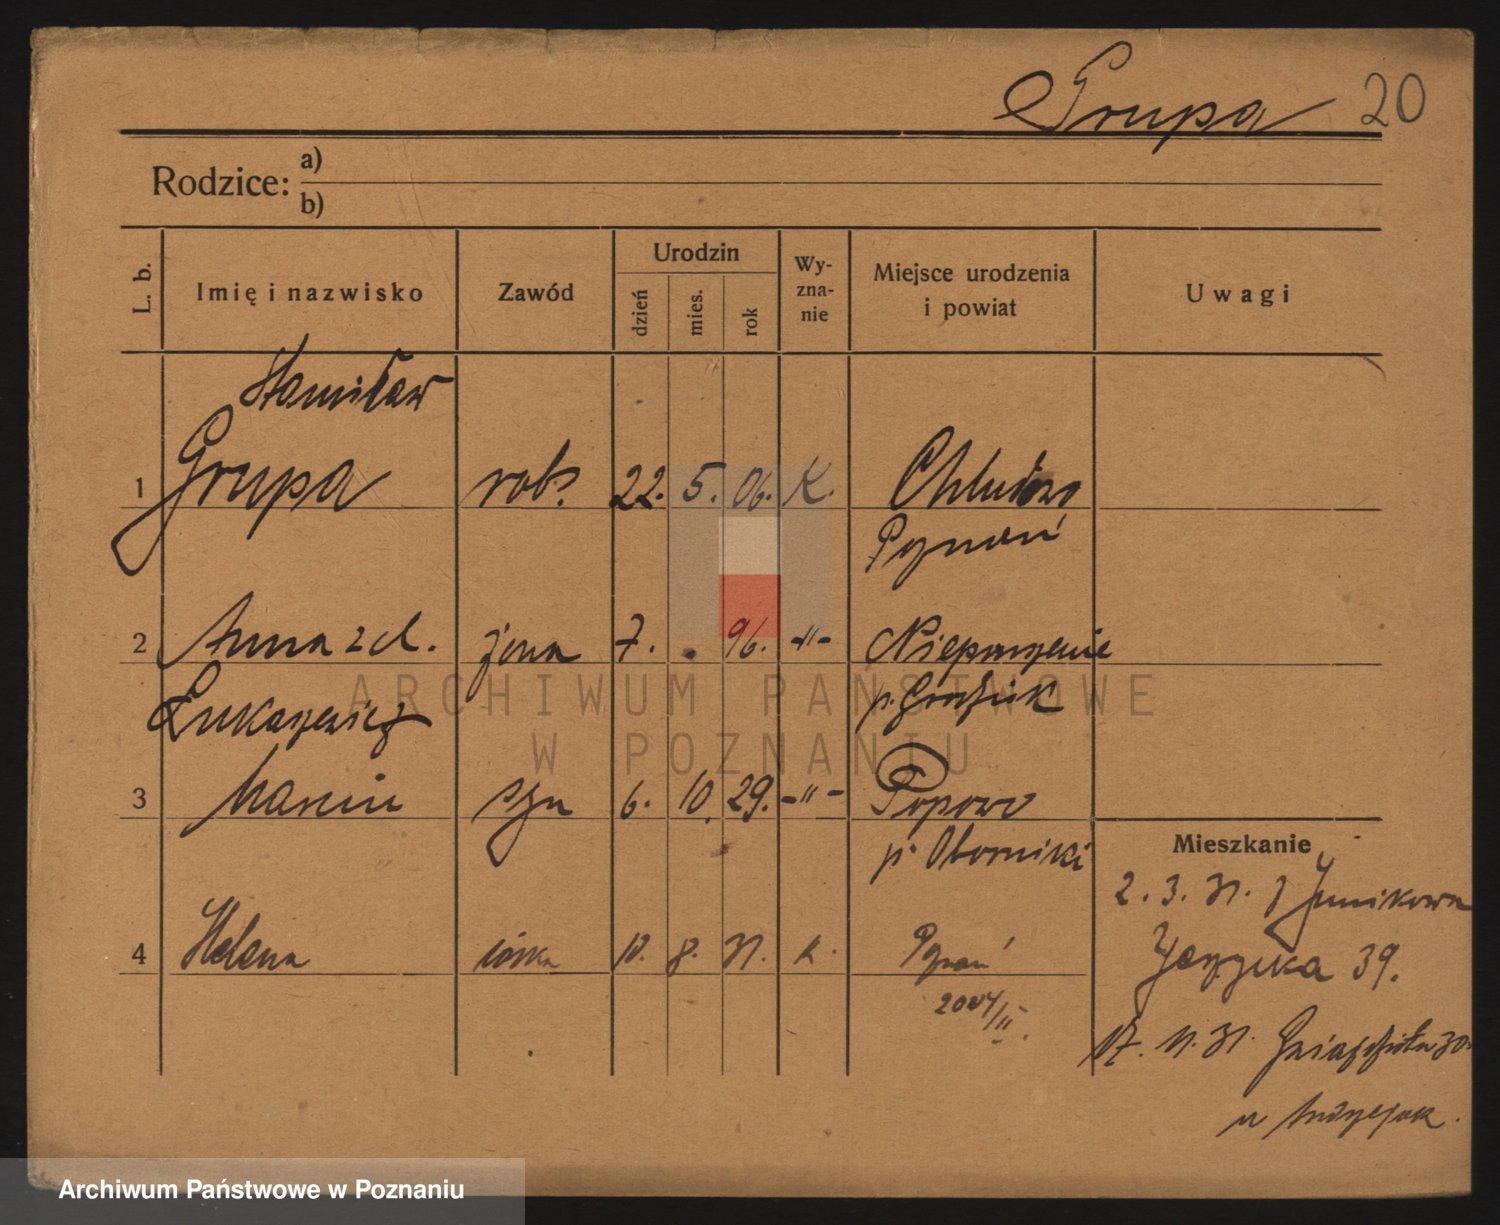 Grupa 20
Rodzice: a)
b)
L. b. Imię i nazwisko Zawód Urodzin dzień mies. rok Wy-zna-nie Miejsce urodzenia i powiat Uwagi
Stanisław
1 Grupa rob. 22. 5. 06. K. Chludowo
Poznań
2 Anna z d. żona 7. 96. -"-
Łukaszewicz
ARCHIWUM PAŃSTWOWE
W POZNANIU
3 Marcin syn 6. 10. 29. -"- Popowo
p. Oborniki
Mieszkanie
2. 3. 31. z Junikowa
4 Helena córka 10. 8. 31. k. Poznań
39.
17. 11. 31.
Archiwum Państwowe w Poznaniu